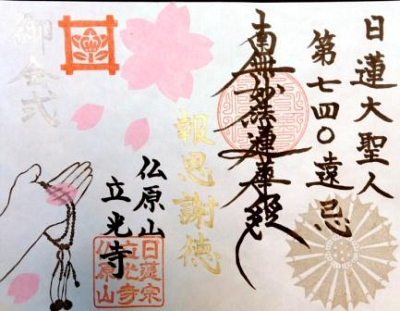 日蓮大聖人
第七四〇遠忌
南無妙法蓮華経
報恩謝徳
仏原山
立光寺
日蓮宗
立光寺
仏原山
御会式